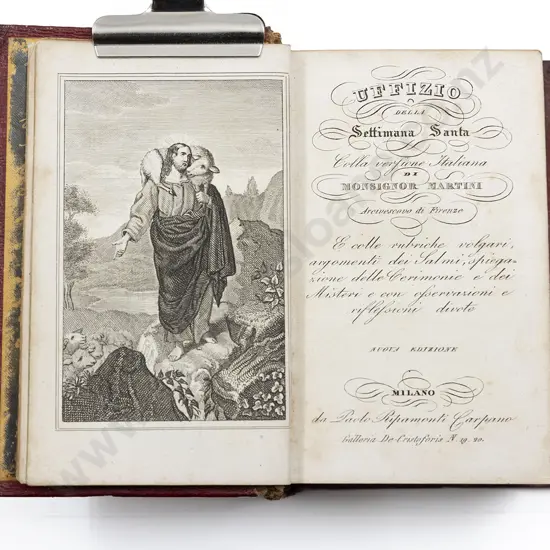 UFFIZIO
DELLA
Settimana Santa
Colla versione Italiana
DI
MONSIGNOR MARTINI
Arcivescovo di Firenze
E colle rubriche volgari,
argomenti dei Salmi, spiega-
zione delle Cerimonie e dei
Misteri e con osservazioni e
riflessioni divote
NUOVA EDIZIONE
MILANO
da Paolo Ripamonti Carpano
Galleria De-Cristoforis N. 19. 20.